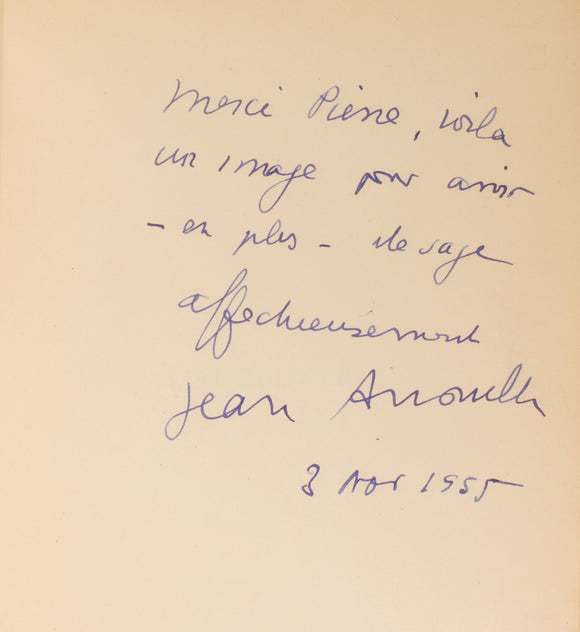 Merci Pierre, voila
un image pour avoir
- en plus - de sage
affectueusement
Jean Anouilh
3 Nov 1955